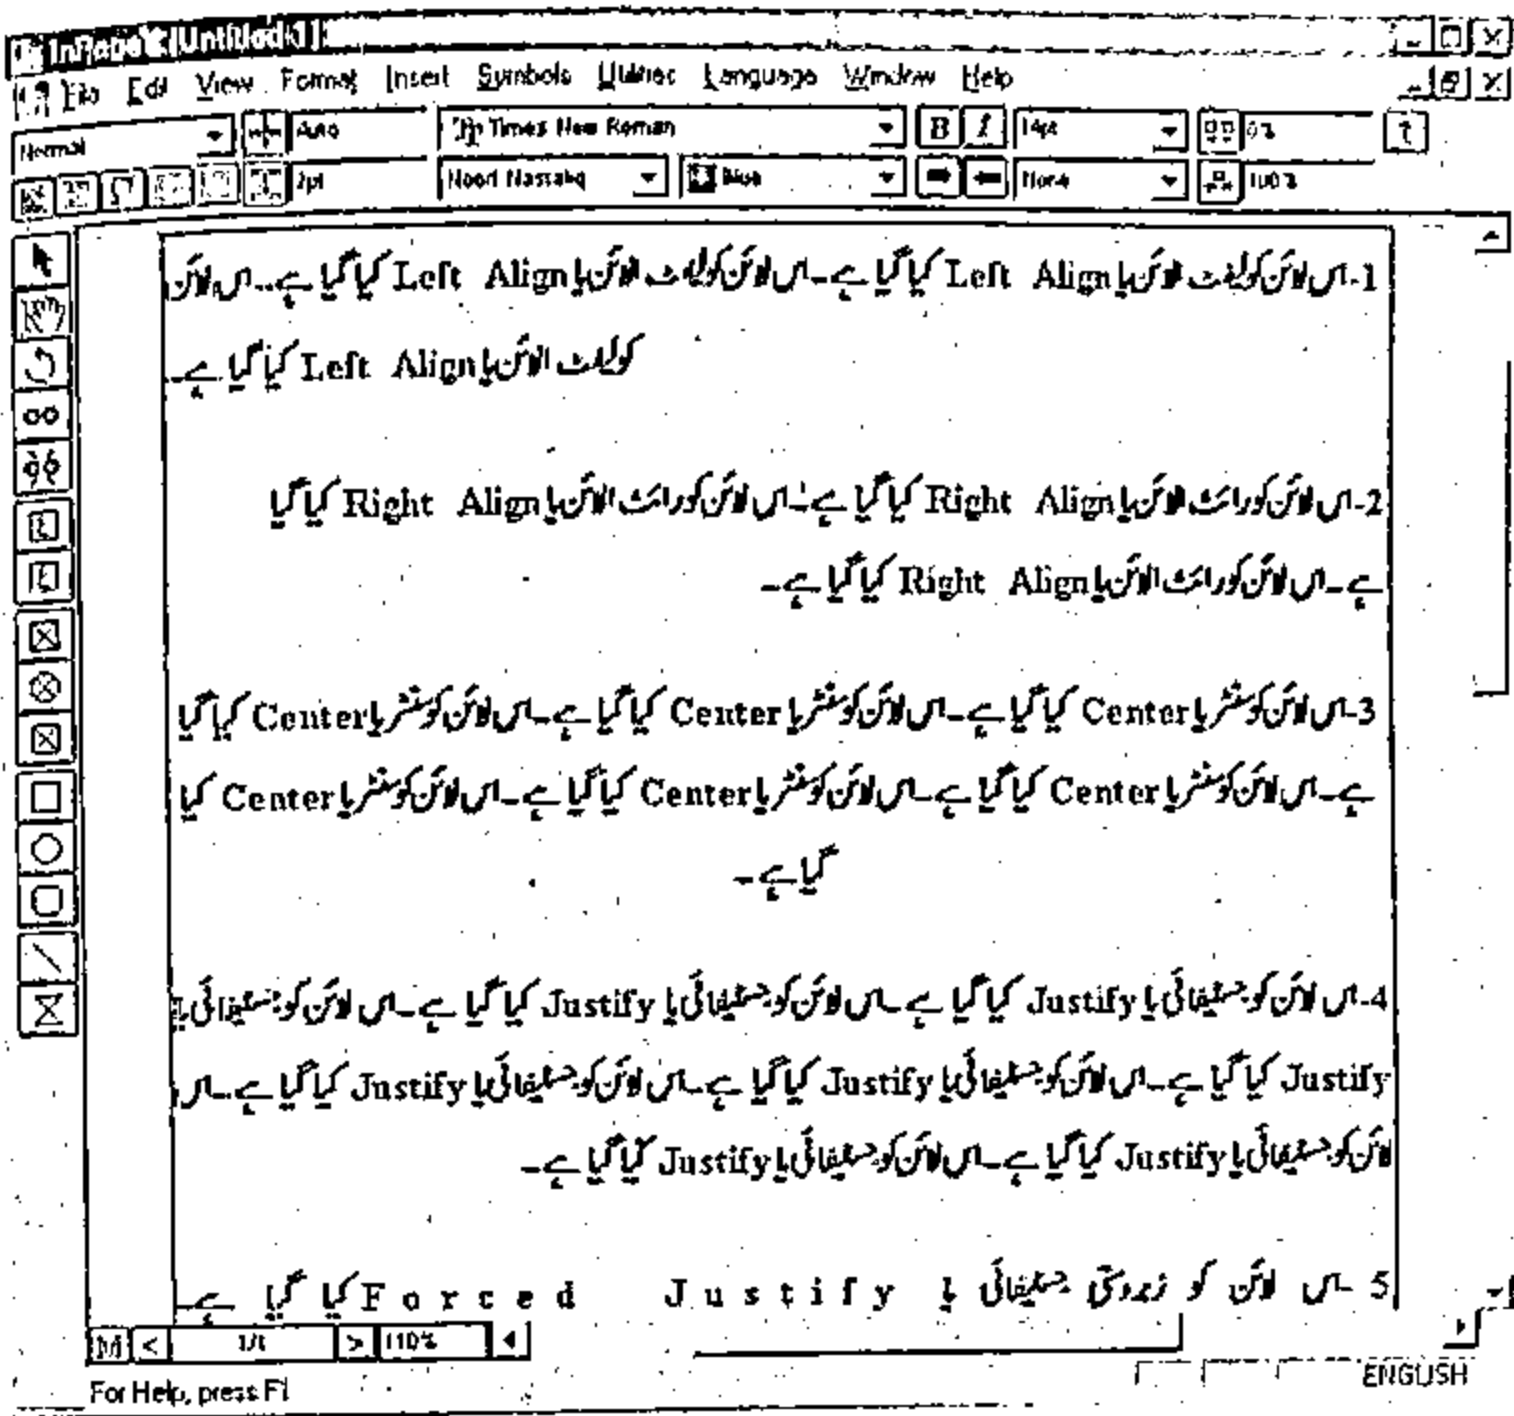 InPage - [Untitled-1]
File Edit View Format Insert Symbols Utilities Language Window Help
Normal Auto Times New Roman B I 14pt 0%
2pt Noori Nastaliq Blue None 100%
1-اس لائن کو لیفٹ الائن یا Left Align کیا گیا ہے۔اس لائن کو لیفٹ الائن یا Left Align کیا گیا ہے۔اس لائن
کو لیفٹ الائن یا Left Align کیا گیا ہے۔
2-اس لائن کو رائٹ الائن یا Right Align کیا گیا ہے۔اس لائن کو رائٹ الائن یا Right Align کیا گیا
ہے۔اس لائن کو رائٹ الائن یا Right Align کیا گیا ہے۔
3-اس لائن کو سنٹر یا Center کیا گیا ہے۔اس لائن کو سنٹر یا Center کیا گیا ہے۔اس لائن کو سنٹر یا Center کیا گیا
ہے۔اس لائن کو سنٹر یا Center کیا گیا ہے۔اس لائن کو سنٹر یا Center کیا گیا ہے۔اس لائن کو سنٹر یا Center کیا
گیا ہے۔
4-اس لائن کو جسٹیفائی یا Justify کیا گیا ہے۔اس لائن کو جسٹیفائی یا Justify کیا گیا ہے۔اس لائن کو جسٹیفائی یا
Justify کیا گیا ہے۔اس لائن کو جسٹیفائی یا Justify کیا گیا ہے۔اس لائن کو جسٹیفائی یا Justify کیا گیا ہے۔اس
لائن کو جسٹیفائی یا Justify کیا گیا ہے۔اس لائن کو جسٹیفائی یا Justify کیا گیا ہے۔
5-اس لائن کو زبردستی جسٹیفائی یا Forced Justify کیا گیا ہے۔
M < 1/1 > 110%
For Help, press F1
ENGLISH